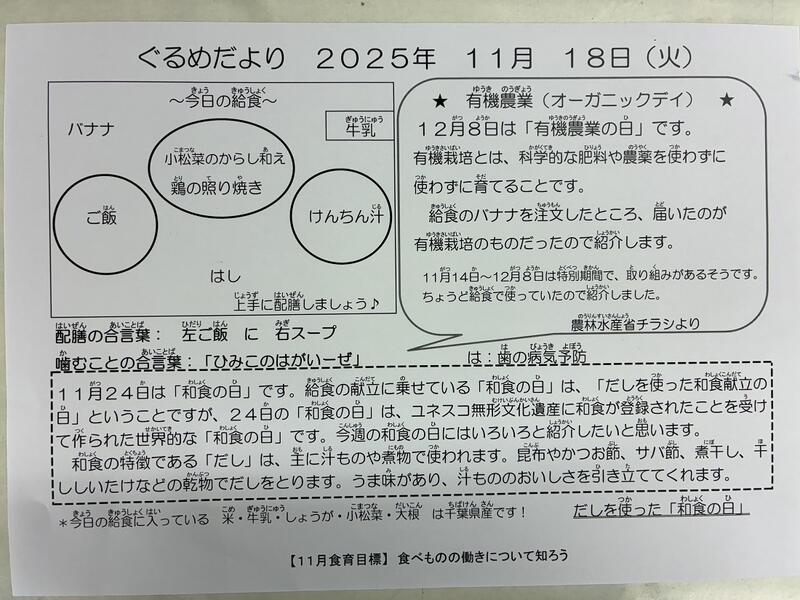 ぐるめだより　２０２５年　１１月　１８日（火）
～今日の給食～
バナナ
牛乳
小松菜のからし和え
鶏の照り焼き
ご飯
けんちん汁
はし
上手に配膳しましょう♪
★ 有機農業（オーガニックデイ） ★
１２月８日は「有機農業の日」です。
有機栽培とは、科学的な肥料や農薬を使わずに
使わずに育てることです。
給食のバナナを注文したところ、届いたのが
有機栽培のものだったので紹介します。
11月14日～12月8日は特別期間で、取り組みがあるそうです。
ちょうど給食で使っていたので紹介しました。
農林水産省チラシより
配膳の合言葉：　左ご飯　に　右スープ
噛むことの合言葉：「ひみこのはがいーぜ」　は：歯の病気予防
１１月２４日は「和食の日」です。給食の献立に乗せている「和食の日」は、「だしを使った和食献立の
日」ということですが、２４日の「和食の日」は、ユネスコ無形文化遺産に和食が登録されたことを受け
て作られた世界的な「和食の日」です。今週の和食の日にはいろいろと紹介したいと思います。
和食の特徴である「だし」は、主に汁ものや煮物で使われます。昆布やかつお節、サバ節、煮干し、干
ししいたけなどの乾物でだしをとります。うま味があり、汁もののおいしさを引き立ててくれます。
＊今日の給食に入っている　米・牛乳・しょうが・小松菜・大根　は千葉県産です！　だしを使った「和食の日」
【11月食育目標】 食べものの働きについて知ろう